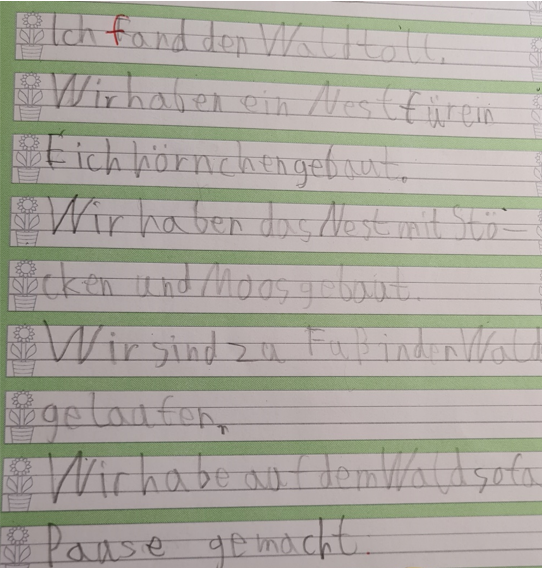 Ich fand den Wald toll.
Wir haben ein Nest für ein
Eichhörnchen gebaut.
Wir haben das Nest mit Stö-
cken und Moos gebaut.
Wir sind zu Fuß in den Wald
gelaufen,
Wir habe auf dem Waldsofa
Pause gemacht.